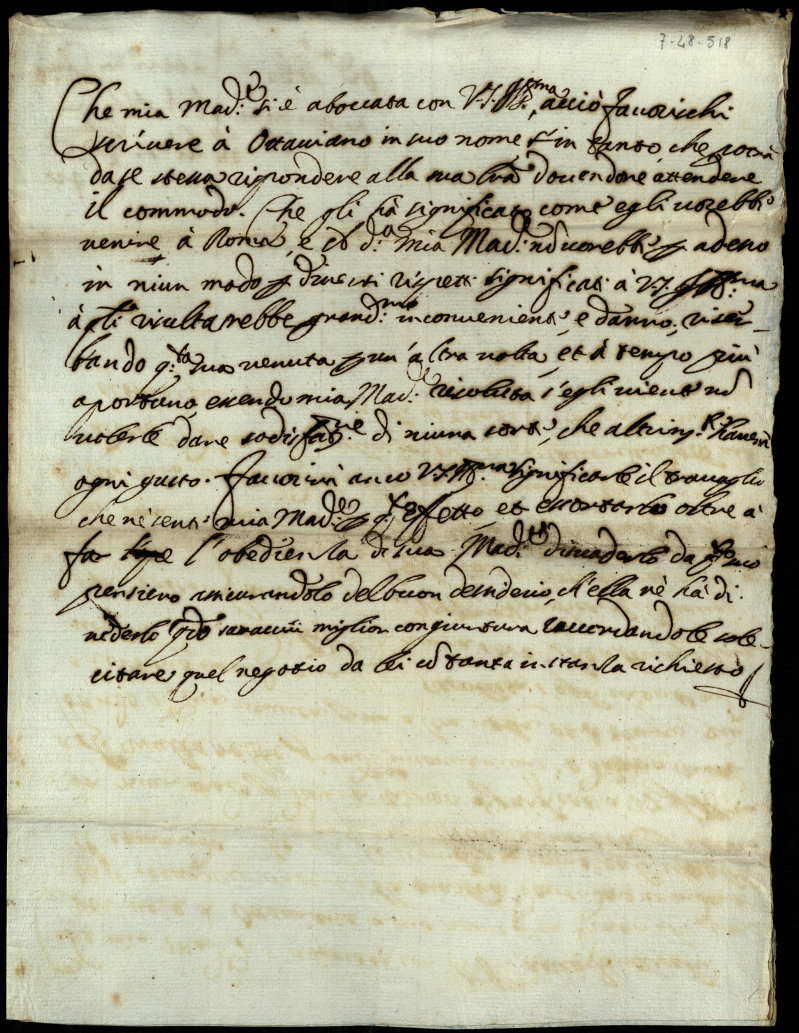 7-48-518
Che mia Mad.e si è aboccata con V.S. Ill.ma, acciò favorischi
scrivere à Ottaviano in suo nome in tanto che potrà
da se stessa rispondere alla sua l'rã dovendone attendere
il commodo. Che gli hà significato come egli vorebbe
venire à Roma, e ch d.a mia Mad.e nõ vorebbe p adesso
in niun modo p diversi rispetti significati à V.S. Ill.ma
à q'li risultarebbe grand.mo inconveniente, e danno, riser-
bando q.ta sua venuta p un'altra volta, et à tempo più
oportuno, essendo mia Mad.e risoluta s'egli viene nõ
volerle dare sodisfat.ne di niuna sorte, che altrim.te haverà
ogni gusto. Favorirà anco V.S. Ill.ma significarle il travaglio
che nè sente mia Mad.e p q.to effetto et essortarlo oltre à
far l'obedienza di sua Mad.e dissuaderlo da q.to suo
pensiero assicurandolo del buon desiderio, ch'ella nè hà di
vederlo q'do saravvi miglior congiuntura raccordandole sole-
citare quel negotio da lei cõ tanta instanza richiesto